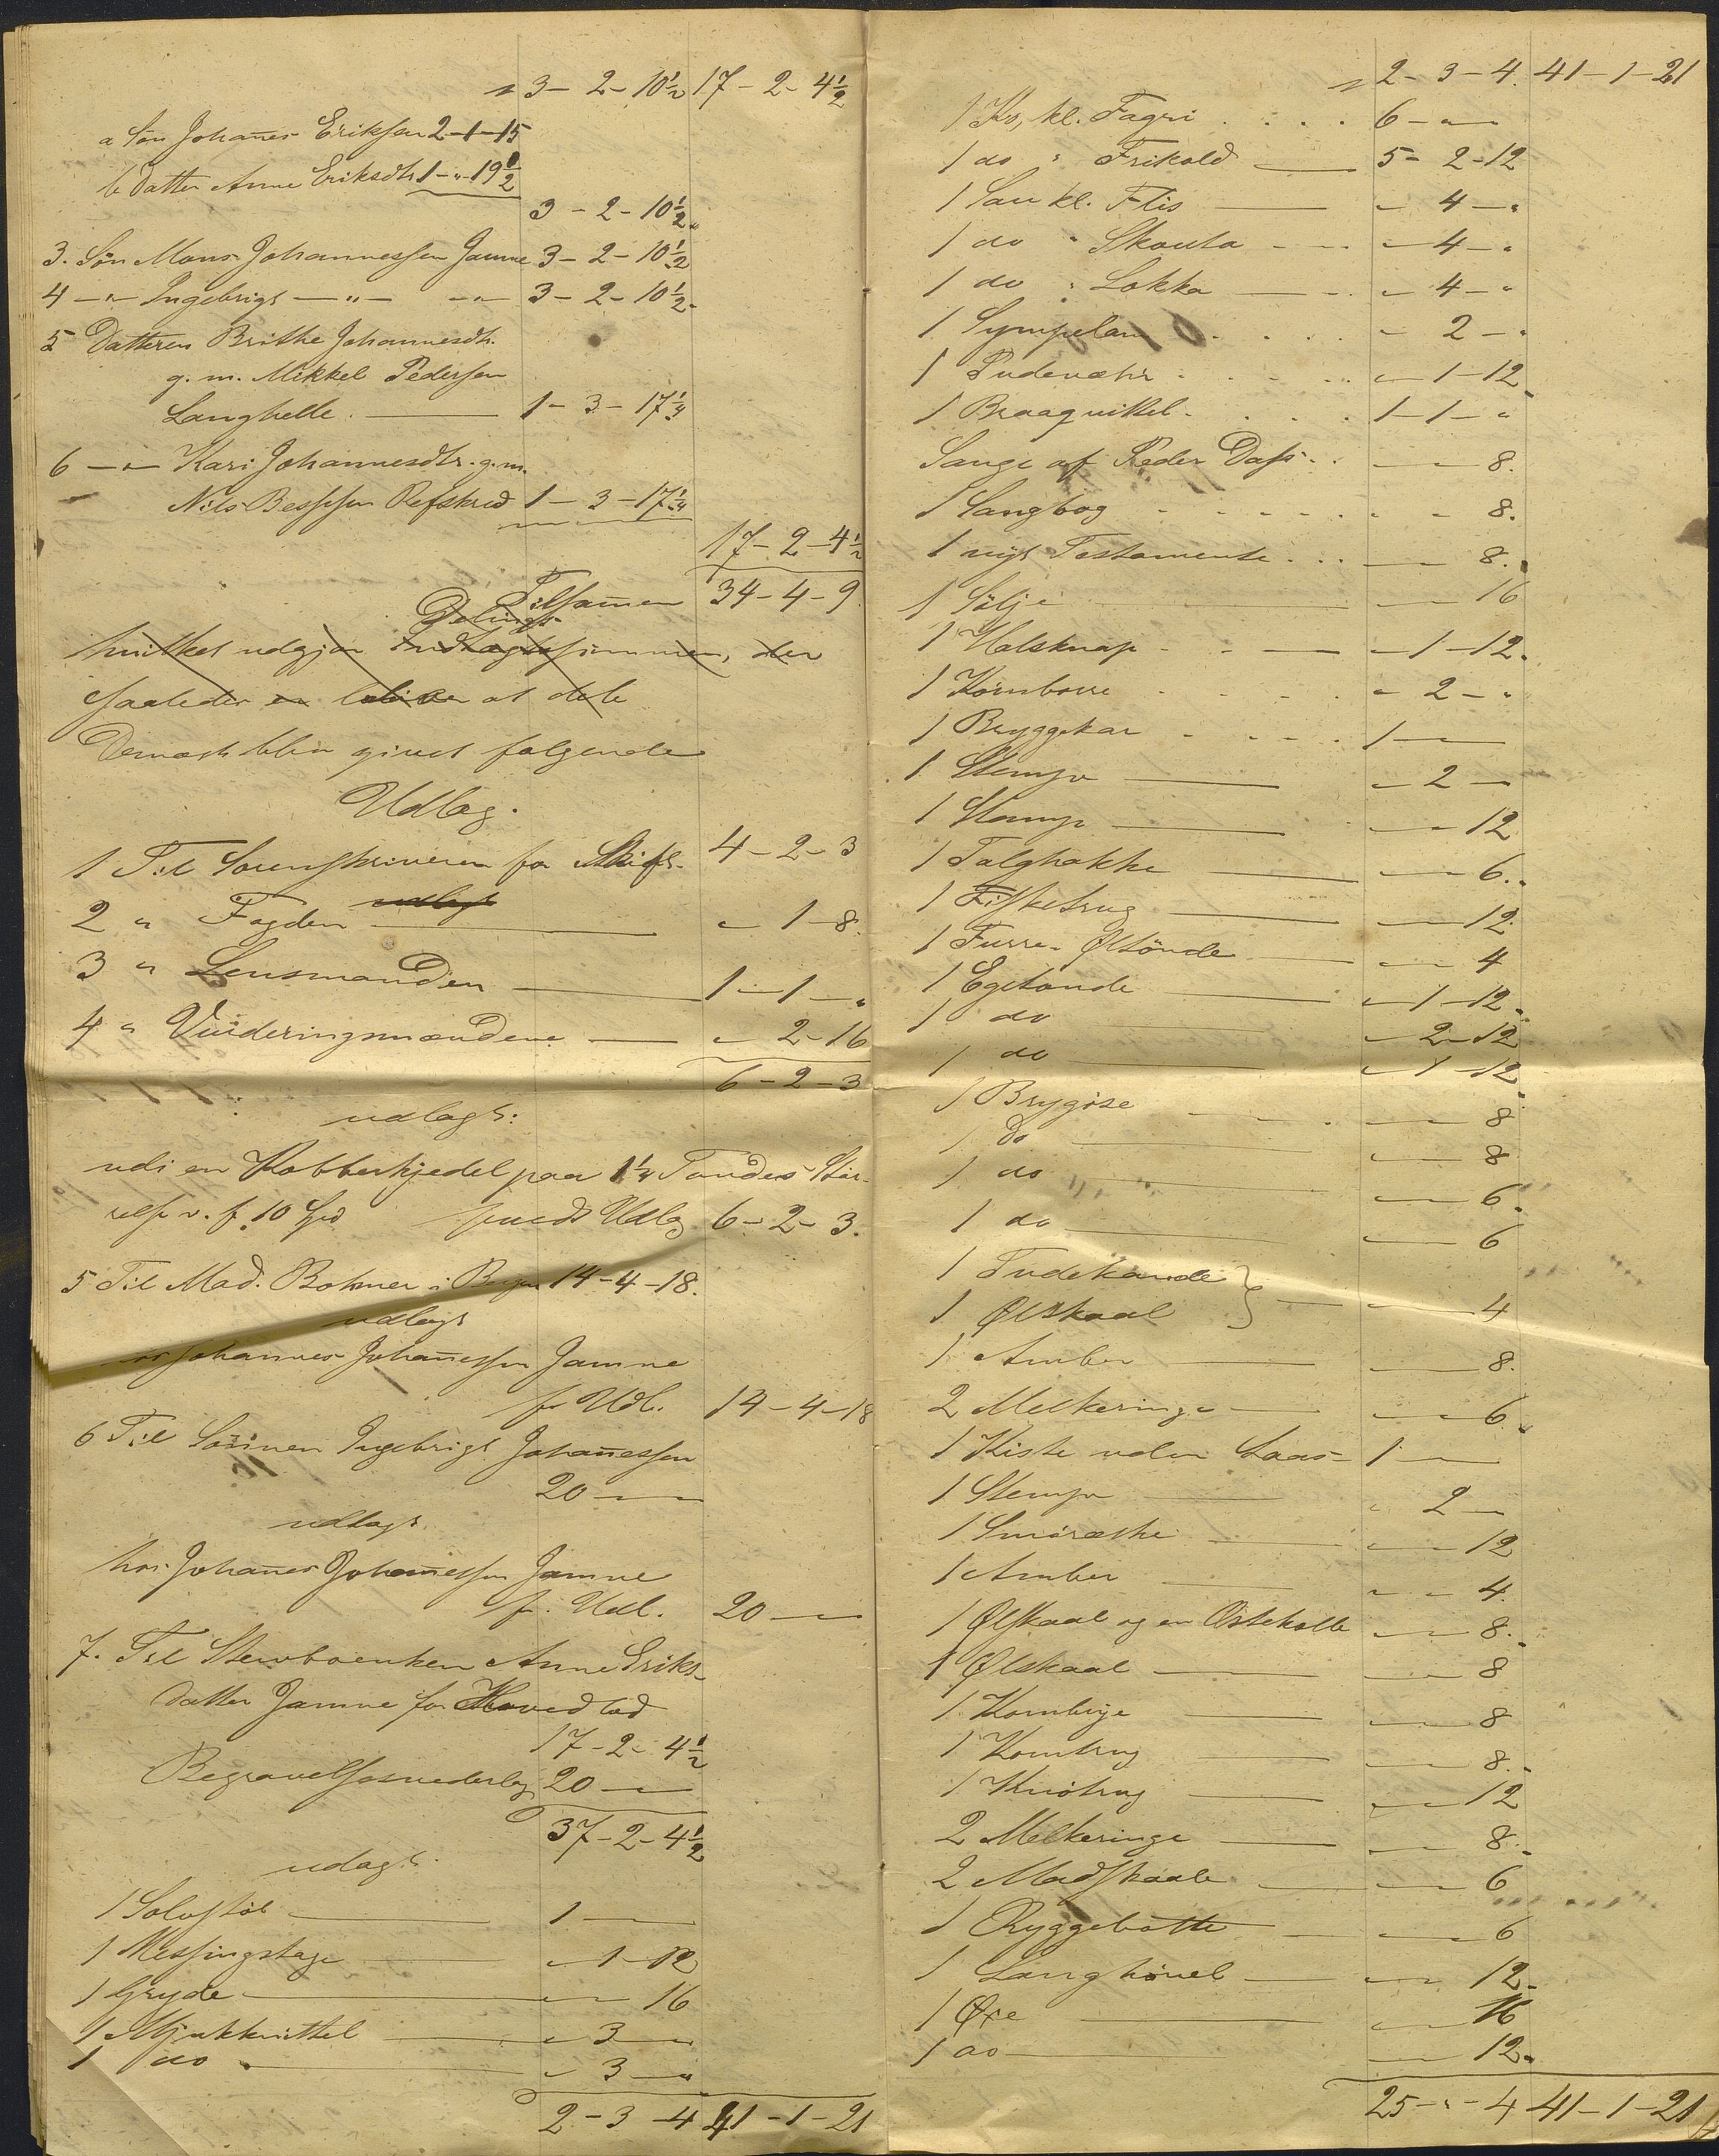 3 - 2 - 10½ 17 - 2 - 4½
a Søn Johañes Eriksen 2-1-15
b Datter Anne Eriksdtr 1-"-19½
3 - 2 - 10½
3. Søn Mons Johannessen Jamne 3 - 2 - 10½
4 -"- Ingebrigt -"- -"- 3 - 2 - 10½
5 Datteren Brithe Johannesdtr.
g. m. Mikkel Pedersen
Langhelle. 1 - 3 - 17¼
6 -"- Kari Johannesdtr. g. m.
Nils Bessesen Refskred 1 - 3 - 17¼
17 - 2 - 4½
Tilsam̄en 34 - 4 - 9.
Delings
hvilket udgjør Indtægtssummen, der
saaledes en at dele
Dernæst blev givet følgende
Udlæg.
1 Til Sorenskriveren for Skift. 4 - 2 - 3
udlagt
2 " Fogden " 1 - 8.
3 " Lensmanden 1 - 1 - "
4 " Vurderingsmændene " 2 - 16
6 - 2 - 3
udlagt:
udi en Kobberkjedel paa 1¼ Tønders Stør-
relse v. f. 10 Spd Udlæg 6 - 2 - 3.
5 Til Mad. Bohmer i Bergen 14 - 4 - 18.
udlagt
hos Johannes Johañessen Jamne
f. Udl. 14 - 4 - 18
6 Til Sønnen Ingebrigt Johañessen
20 - " - "
udlagt
hos Johañes Johañessen Jamne
f. Udl. 20 - " - "
7. Til Stervboenken Anne Eriks-
datter Jamne for Hovedlod
17 - 2 - 4½
Begravelsesvederlag 20 - " - "
37 - 2 - 4½
udlagt.
1 Solvstøb 1 - " - "
1 Messingstage " - 1 - 12
1 Gryde " - " - 16
1 Mjølkkittel " - 3 - "
1 do " - 3 - "
2 - 3 - 4 41 - 1 - 21
2 - 3 - 4. 41 - 1 - 21
1 Ko, kl. Fagri 6 - " - "
1 do " Frikold 5 - 2 - 12
1 Sau kl. Flis " - 4 - "
1 do " Skouta " - 4 - "
1 do " Lokka " - 4 - "
1 " - 2 - "
1 Pudevær " - 1 - 12
1 Braagvittel 1 - 1 - "
Sange af Peder Dass " - " - 8.
1 Sangbog " - " - 8.
1 nyt Testamente " - " - 8.
1 Sölje " - " - 16
1 Halsknap " - 1 - 12.
1 Kornborre " - 2 - "
1 Bryggekar 1 - " - "
1 Stempe " - 2 - "
1 Stamp " - " - 12
1 Talghakke " - " - 6.
1 Fisketrug " - " - 12.
1 Furre-Øltønde " - " - 4
1 Egetønde " - 1 - 12.
1 do " - 2 - 12
1 do " - 1 - 12
1 Brygøse " - " - 8
1 Do " - " - 8
1 do " - " - 6.
1 do " - " - 6
1 Tudekande }
1 Ølskaal } " - " - 4
1 Amber " - " - 8.
2 Melkeringe " - " - 6
1 Kiste uden Laas 1 - " - "
1 Stempe " 2 - "
1 Smøræske " - " - 12
1 Amber " - " - 4.
1 Ølskaal og en Ostekolle " - " - 8.
1 Ølskaal " - " - 8
1 Kornbyje " - " - 8
1 Korntrug " - " - 8.
1 Knotrug " - " - 12
2 Melkeringe " - " - 8.
2 Madskaale " - " - 6
1 Ryggebøtte " - " - 6
1 Langhövel " - " - 12.
1 Øxe " - " - 16
1 do " - " - 12.
25 - " - 4 41 - 1 - 21